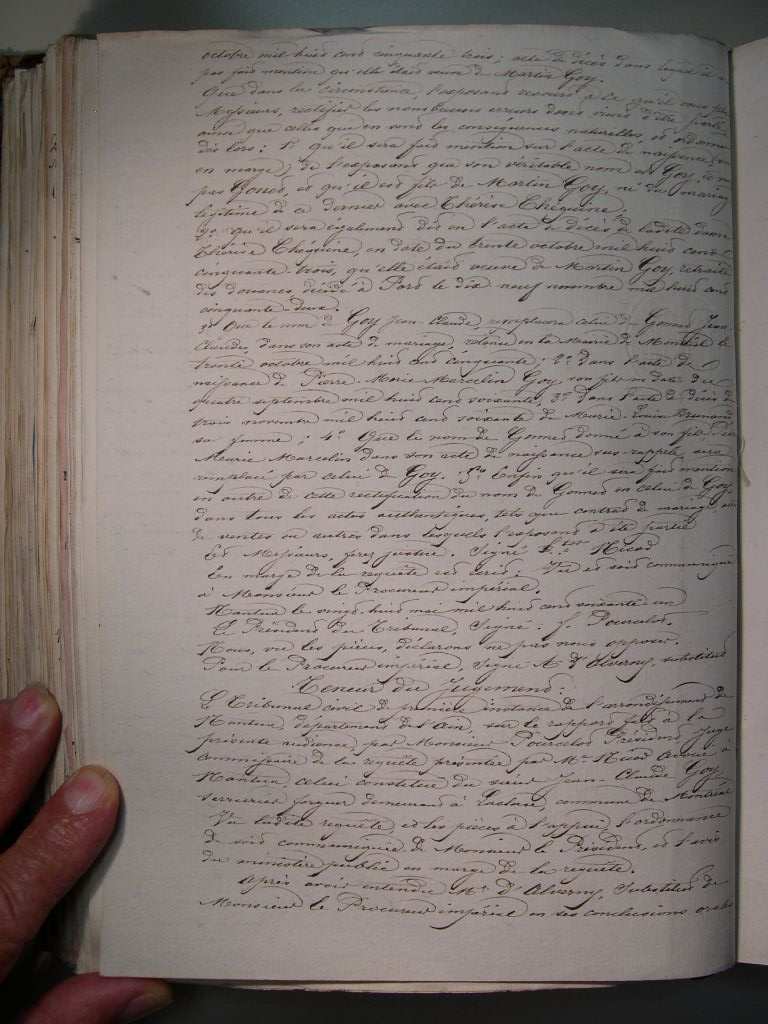 octobre mil huit cent cinquante trois; acte de décès dans lequel il n'a
pas fait mention qu'elle était veuve de Martin Goy.
Que dans la circonstance, l'exposant recourt à ce qu'il vous plaise
Messieurs, rectifier les nombreuses erreurs dont vient d'être parlé
ainsi que celles que en sont les conséquences naturelles, et ordonner
dès lors: 1° qu'il sera fait mention sur l'acte de naissance, ou
en marge, de l'exposant que son véritable nom est Goy, et non
pas Gonet, et qu'il est fils de Martin Goy, né du mariage
légitime de ce dernier avec Thérèse Chéquine.
2° qu'il sera également dit en l'acte de décès de ladite dame
Thérèse Chéquine, en date du trente octobre mil huit cent
cinquante-trois, qu'elle était veuve de Martin Goy, retraité
des douanes décédé à Fort le dix neuf novembre mil huit cent
cinquante deux.
3° Que le nom de Goy Jean-Claude, remplacera celui de Gonnet Jean
Claude, dans son acte de mariage, retenu en la Mairie de Montréal le
trente octobre mil huit cent cinquante; 2° dans l'acte de
naissance de Pierre-Marie Marcelin Goy, son fils en date du
quatre septembre mil huit cent soixante; 3° dans l'acte de décès du
trois novembre mil huit cent soixante de Marie-Louise
sa femme; 4° Que le nom de Gonnet donné à son fils
Marie Marcelin dans son acte de naissance sus-rappelé, sera
remplacé par celui de Goy. 5° Enfin qu'il sera fait mention
en outre de cette rectification du nom de Gonnet en celui de Goy,
dans tous les actes authentiques, tels que contrat de mariage, actes
de ventes ou autres dans lesquels l'exposant a été partie
Et Messieurs, ferez justice. Signé Nicod
En marge de la requête est écrit. Vu et soit communiqué
à Monsieur le Procureur impérial.
Nantua le vingt-huit mai mil huit cent soixante un
Le Président du Tribunal, Signé: J. Pourcelot.
Nous, vu les pièces, déclarons ne pas nous opposer.
Pour le Procureur impérial, Signé A. d'Alverny, substitut
Teneur du Jugement:
Le Tribunal civil de première instance de l'arrondissement de
Nantua, département de l'Ain, sur le rapport fait à la
présente audience, par Monsieur Pourcelot Président, Juge
Commissaire de la requête présentée par Me Nicod Avoué à
Nantua, celui constitué du sieur Jean-Claude Goy
serrurier forgeur demeurant à commune de Montréal
Vu ladite requête, et les pièces à l'appui, l'ordonnance
de soit communiquée de Monsieur le Président, et l'avis
du ministère public en marge de la requête.
Après avoir entendu Mr d'Alverny, Substitut de
Monsieur le Procureur impérial en ses conclusions orales